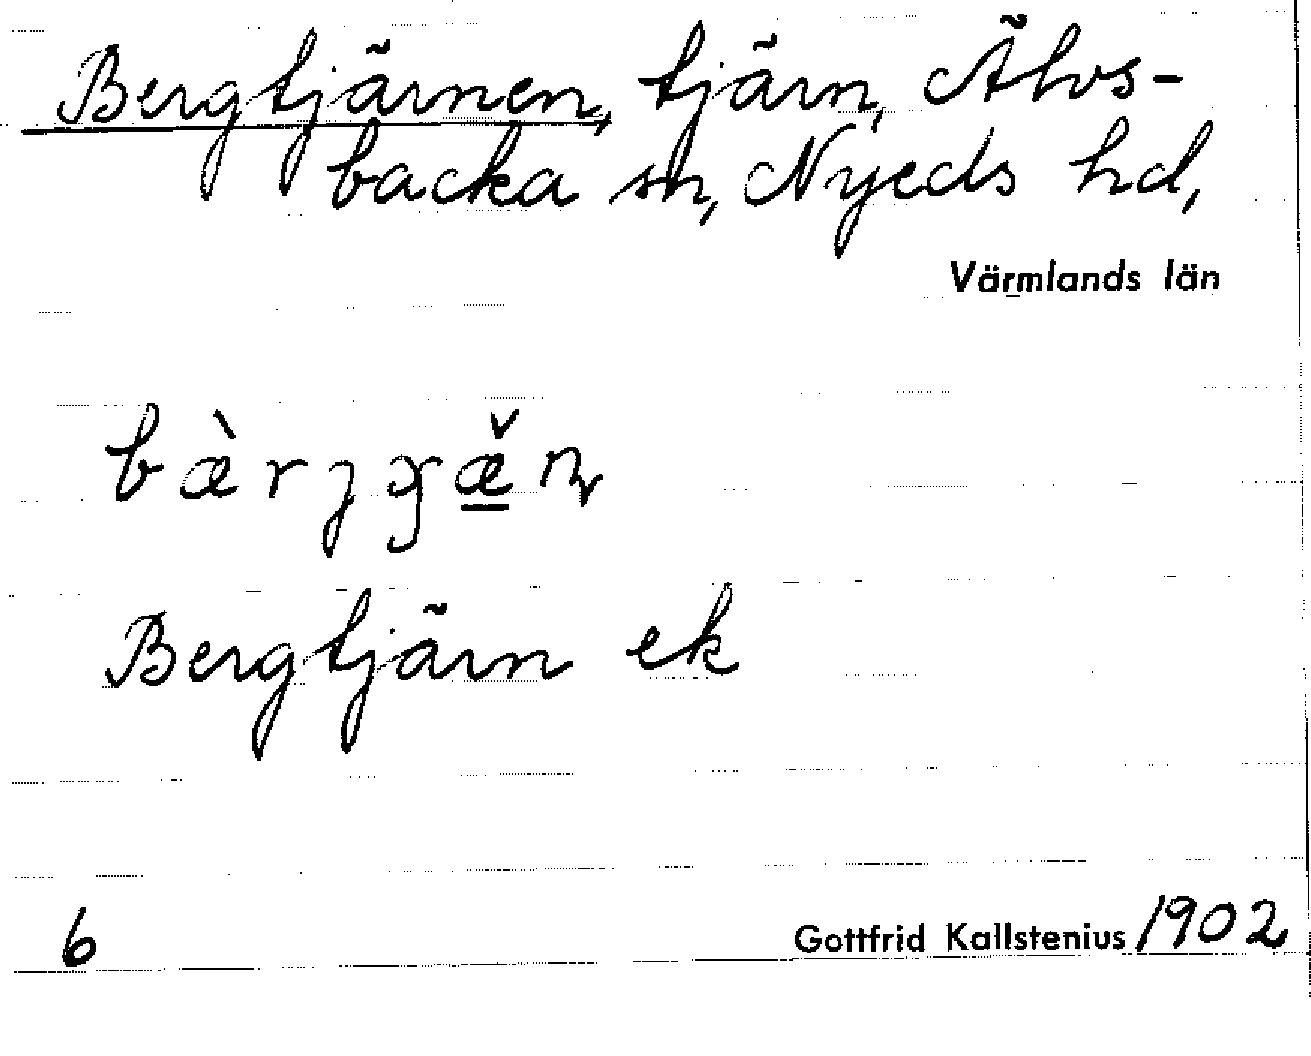 Bergtjärnen, tjärn, Älvs-
backa sn, Nyeds hd,
Värmlands län
Bergtjärn ek
6 Gottfrid Kallstenius 1902